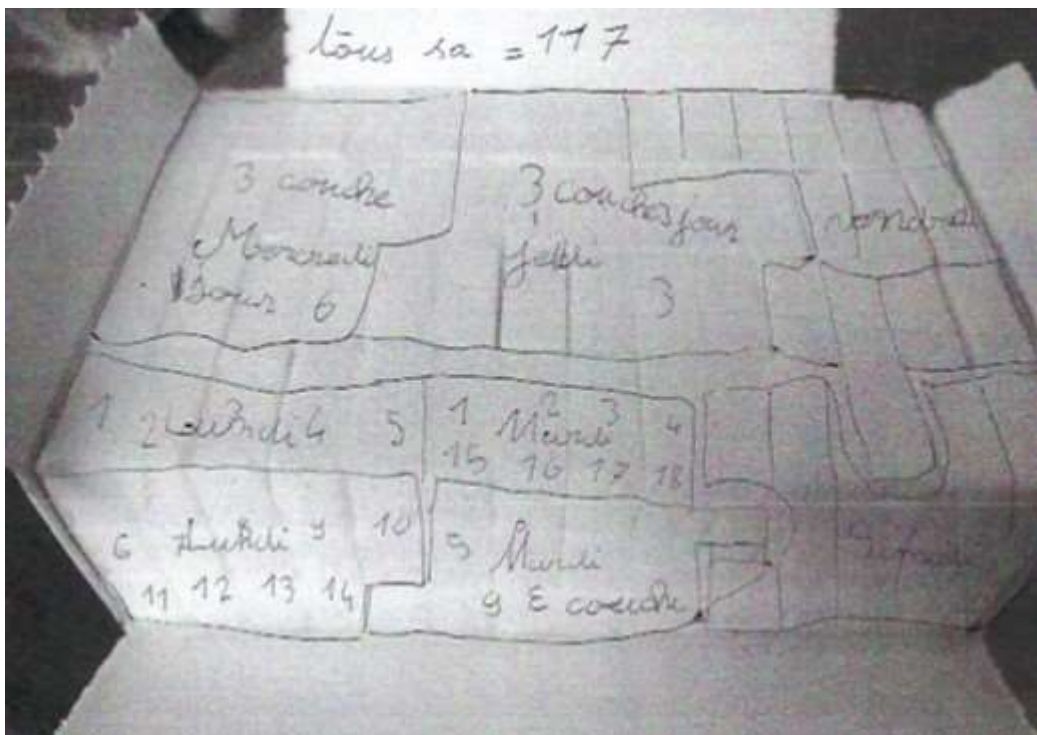 tous sa = 117
3 couche
Mercredi
6
3 couches jour
3
Vendredi
1 2 Lundi 4 5
1 2 3 4
Mardi
15 16 17 18
6 7 Lundi 9 10
11 12 13 14
5 Mardi
9 E couche